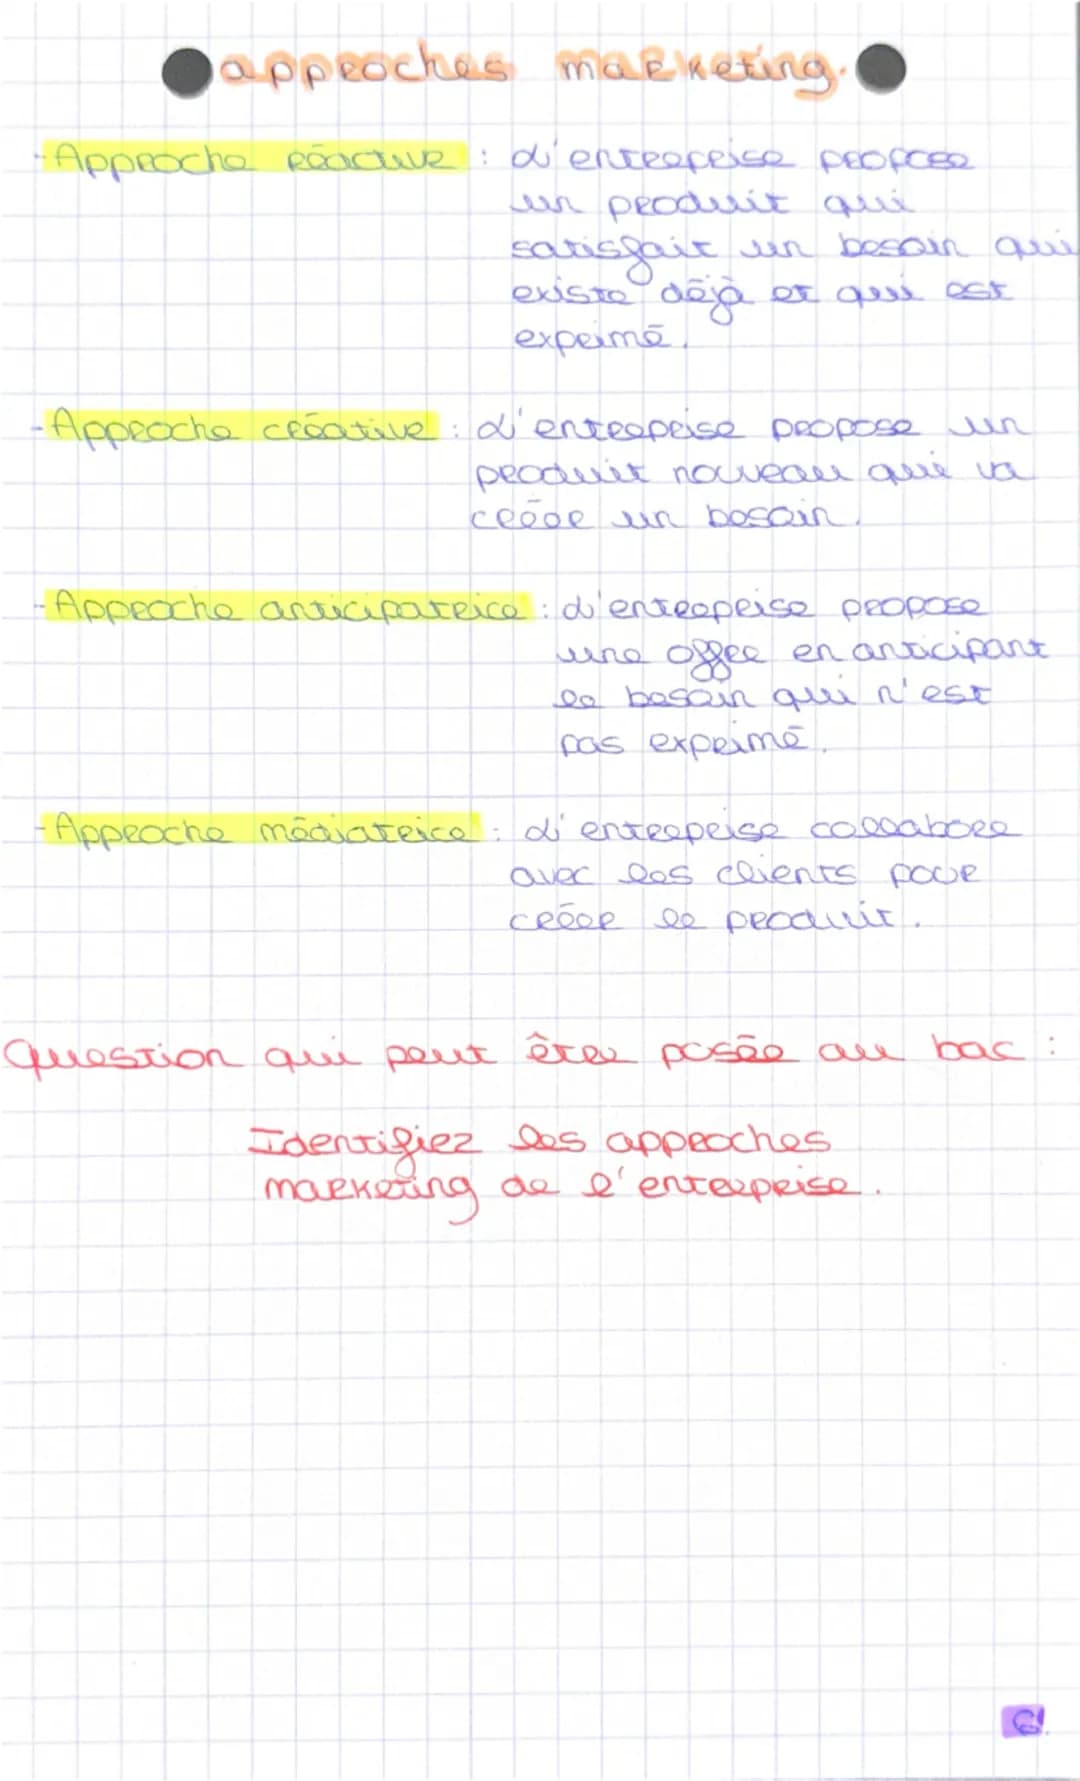 approches marketing.
- Approche réactive : L'entreprise propose
un produit qui
satisfait un besoin qui
existe déjà et qui est
exprimé.
- Approche créative : L'entreprise propose un
produit nouveau qui va
créer un besoin.
- Approche anticipatrice : L'entreprise propose
une offre en anticipant
le besoin qui n'est
pas exprimé.
- Approche médiatrice : L'entreprise collabore
avec les clients pour
créer le produit.
Question qui peut être posée au bac :
Identifiez les approches
marketing de l'entreprise.